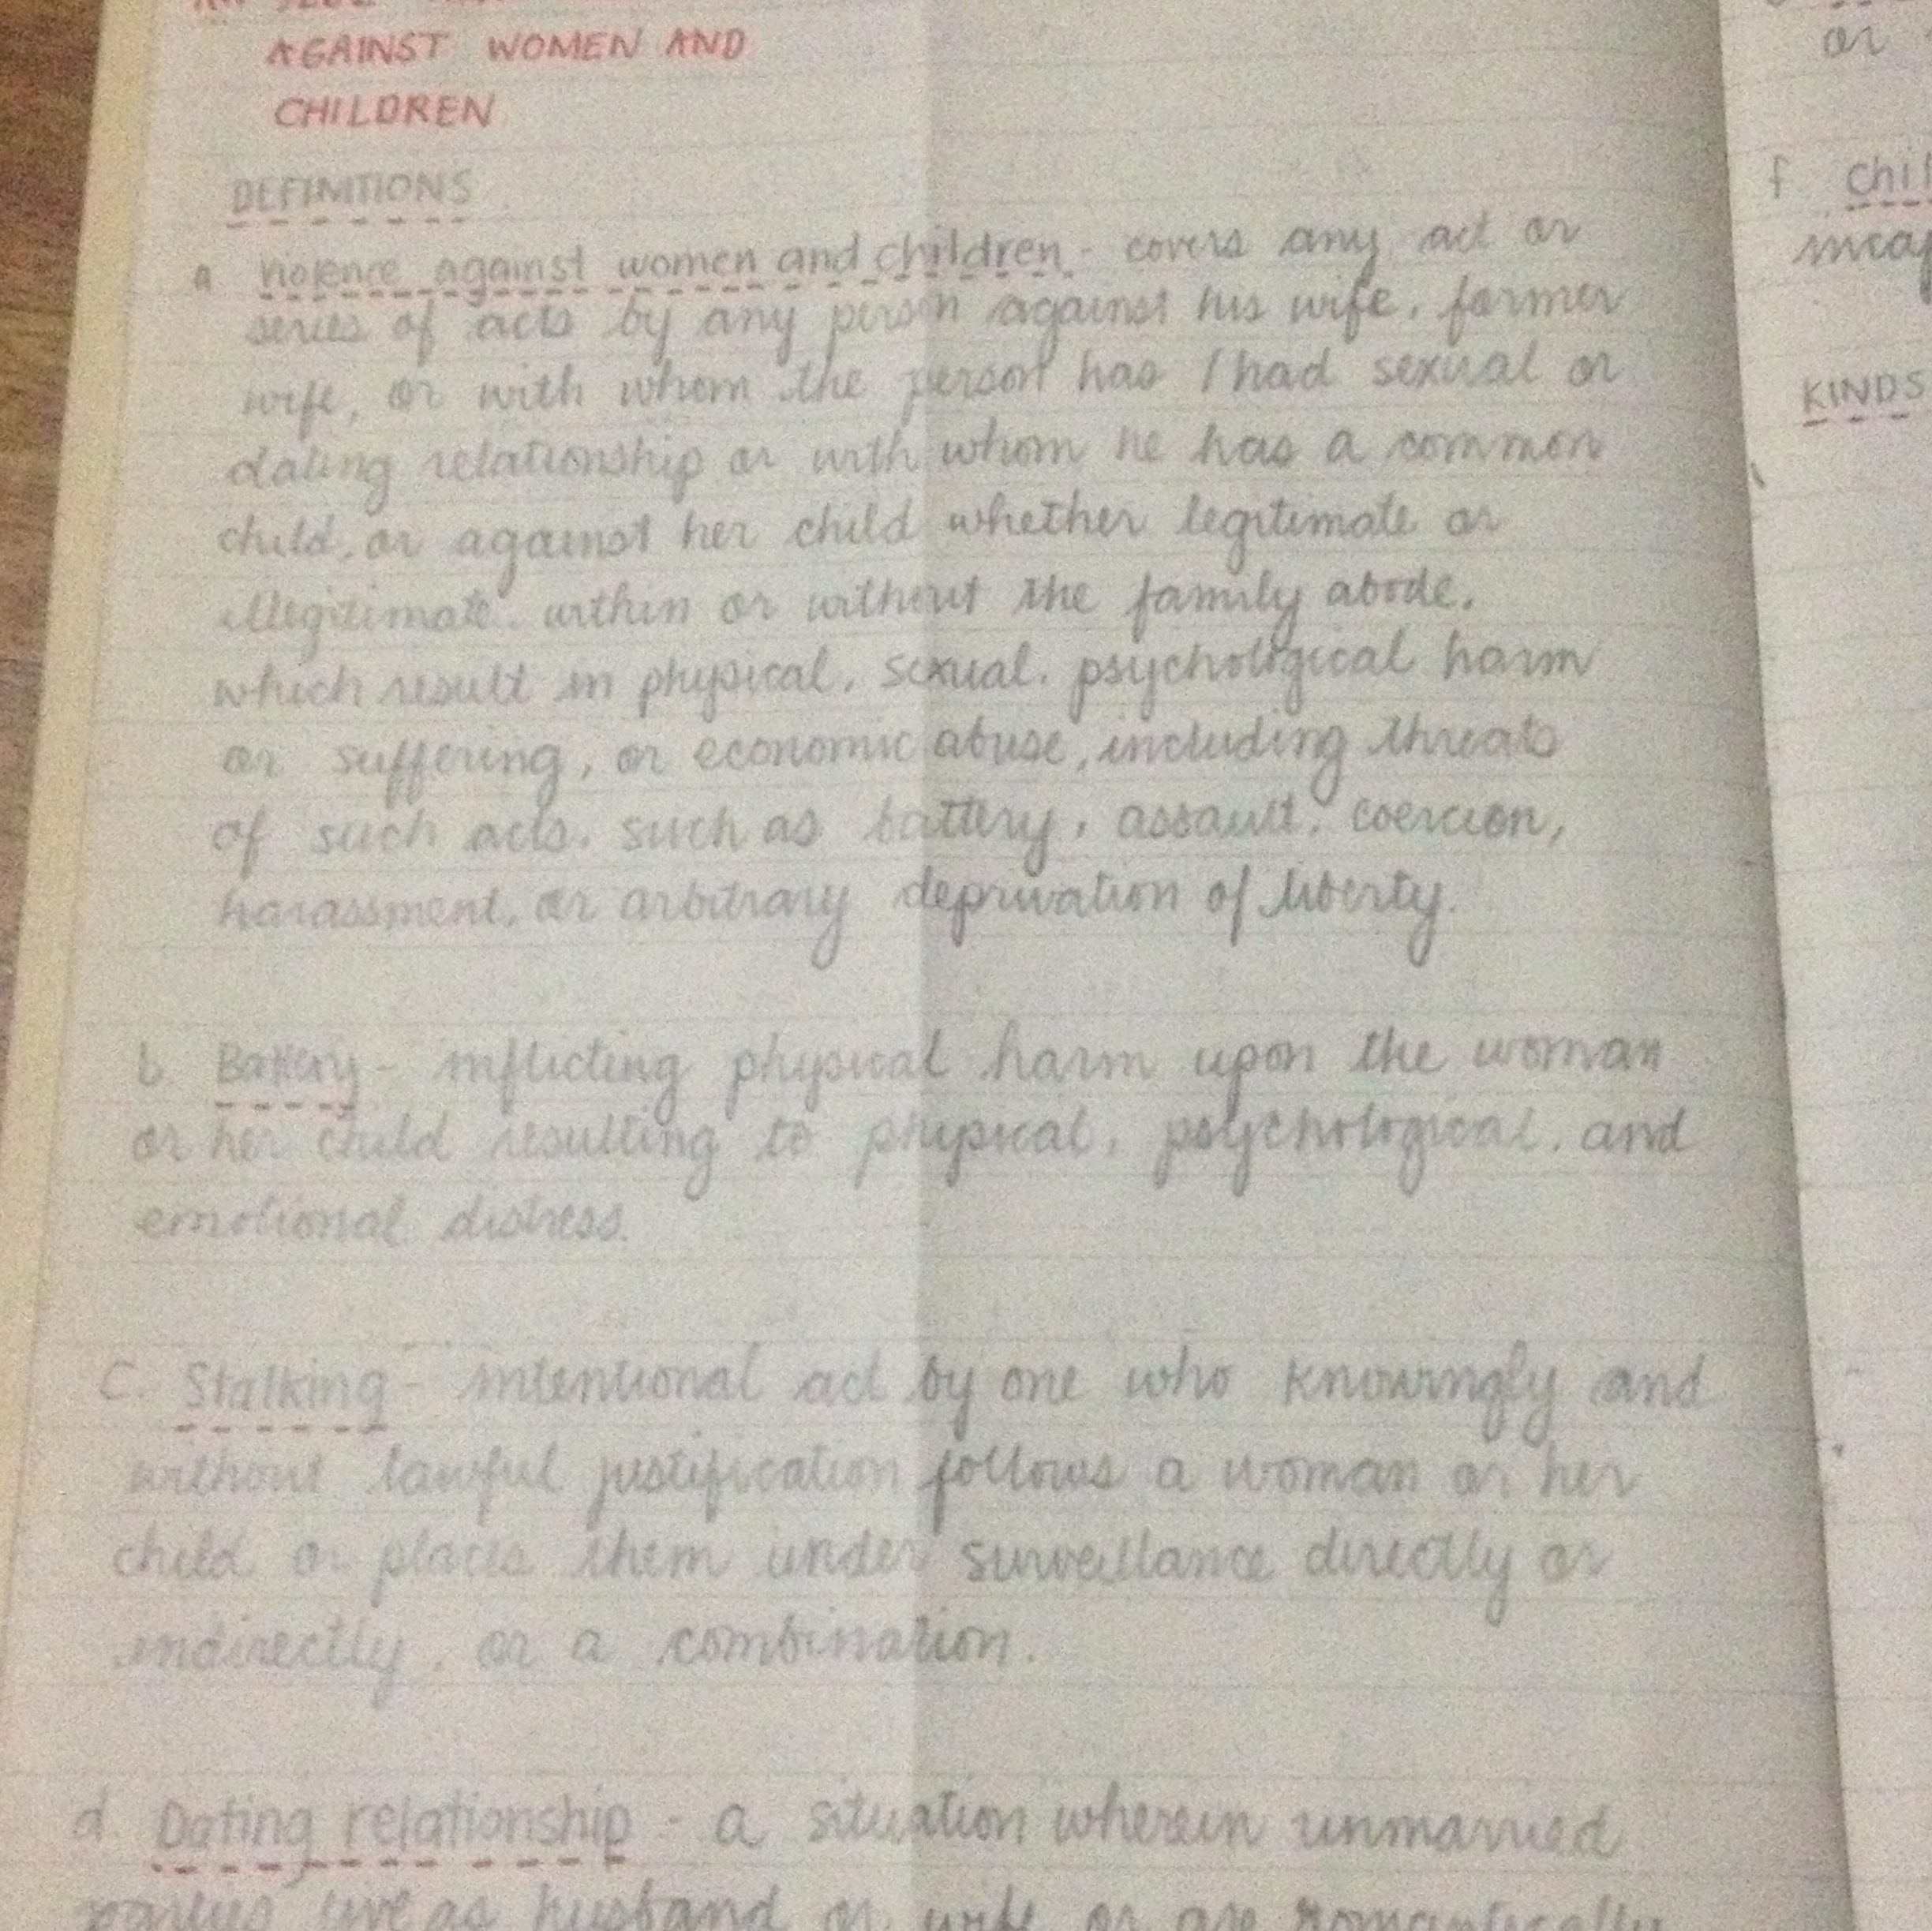 AGAINST WOMEN AND
CHILDREN
DEFINITIONS
a violence against women and children - covers any act or
series of acts by any person against his wife, former
wife, or with whom the person has / had sexual or
dating relationship or with whom he has a common
child, or against her child whether legitimate or
illegitimate within or without the family abode,
which result in physical, sexual, psychological harm
or suffering, or economic abuse, including threats
of such acts, such as battery, assault, coercion,
harassment, or arbitrary deprivation of liberty.
b Battery - inflicting physical harm upon the woman
or her child resulting to physical, psychological, and
emotional distress.
c. Stalking - intentional act by one who knowingly and
without lawful justification follows a woman or her
child or places them under surveillance directly or
indirectly, or a combination.
d. Dating relationship - a situation wherein unmarried
parties live as husband or wife or are romantically
or
f Chil
incap
KINDS